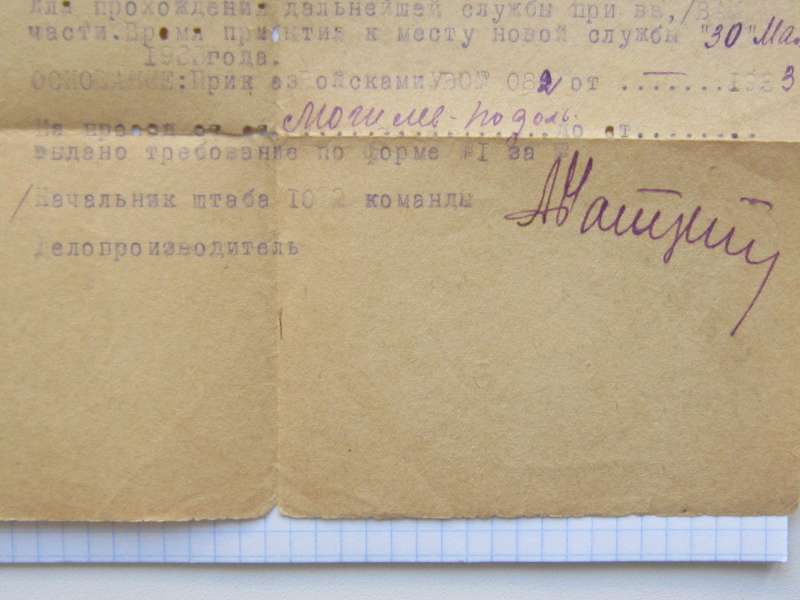 для прохождения дальнейшей службы при ва,/В
части.Время прибытия к месту новой службы "30" Мая
193 года.
ОСНОВАНИЕ:Приказ Войсками УВО № 082 от ........193 3
На проезд от ст. Могилев-Подоль. до ст.........
выдано требование по форме №1 за №
/Начальник штаба 10 2 команды
Делопроизводитель